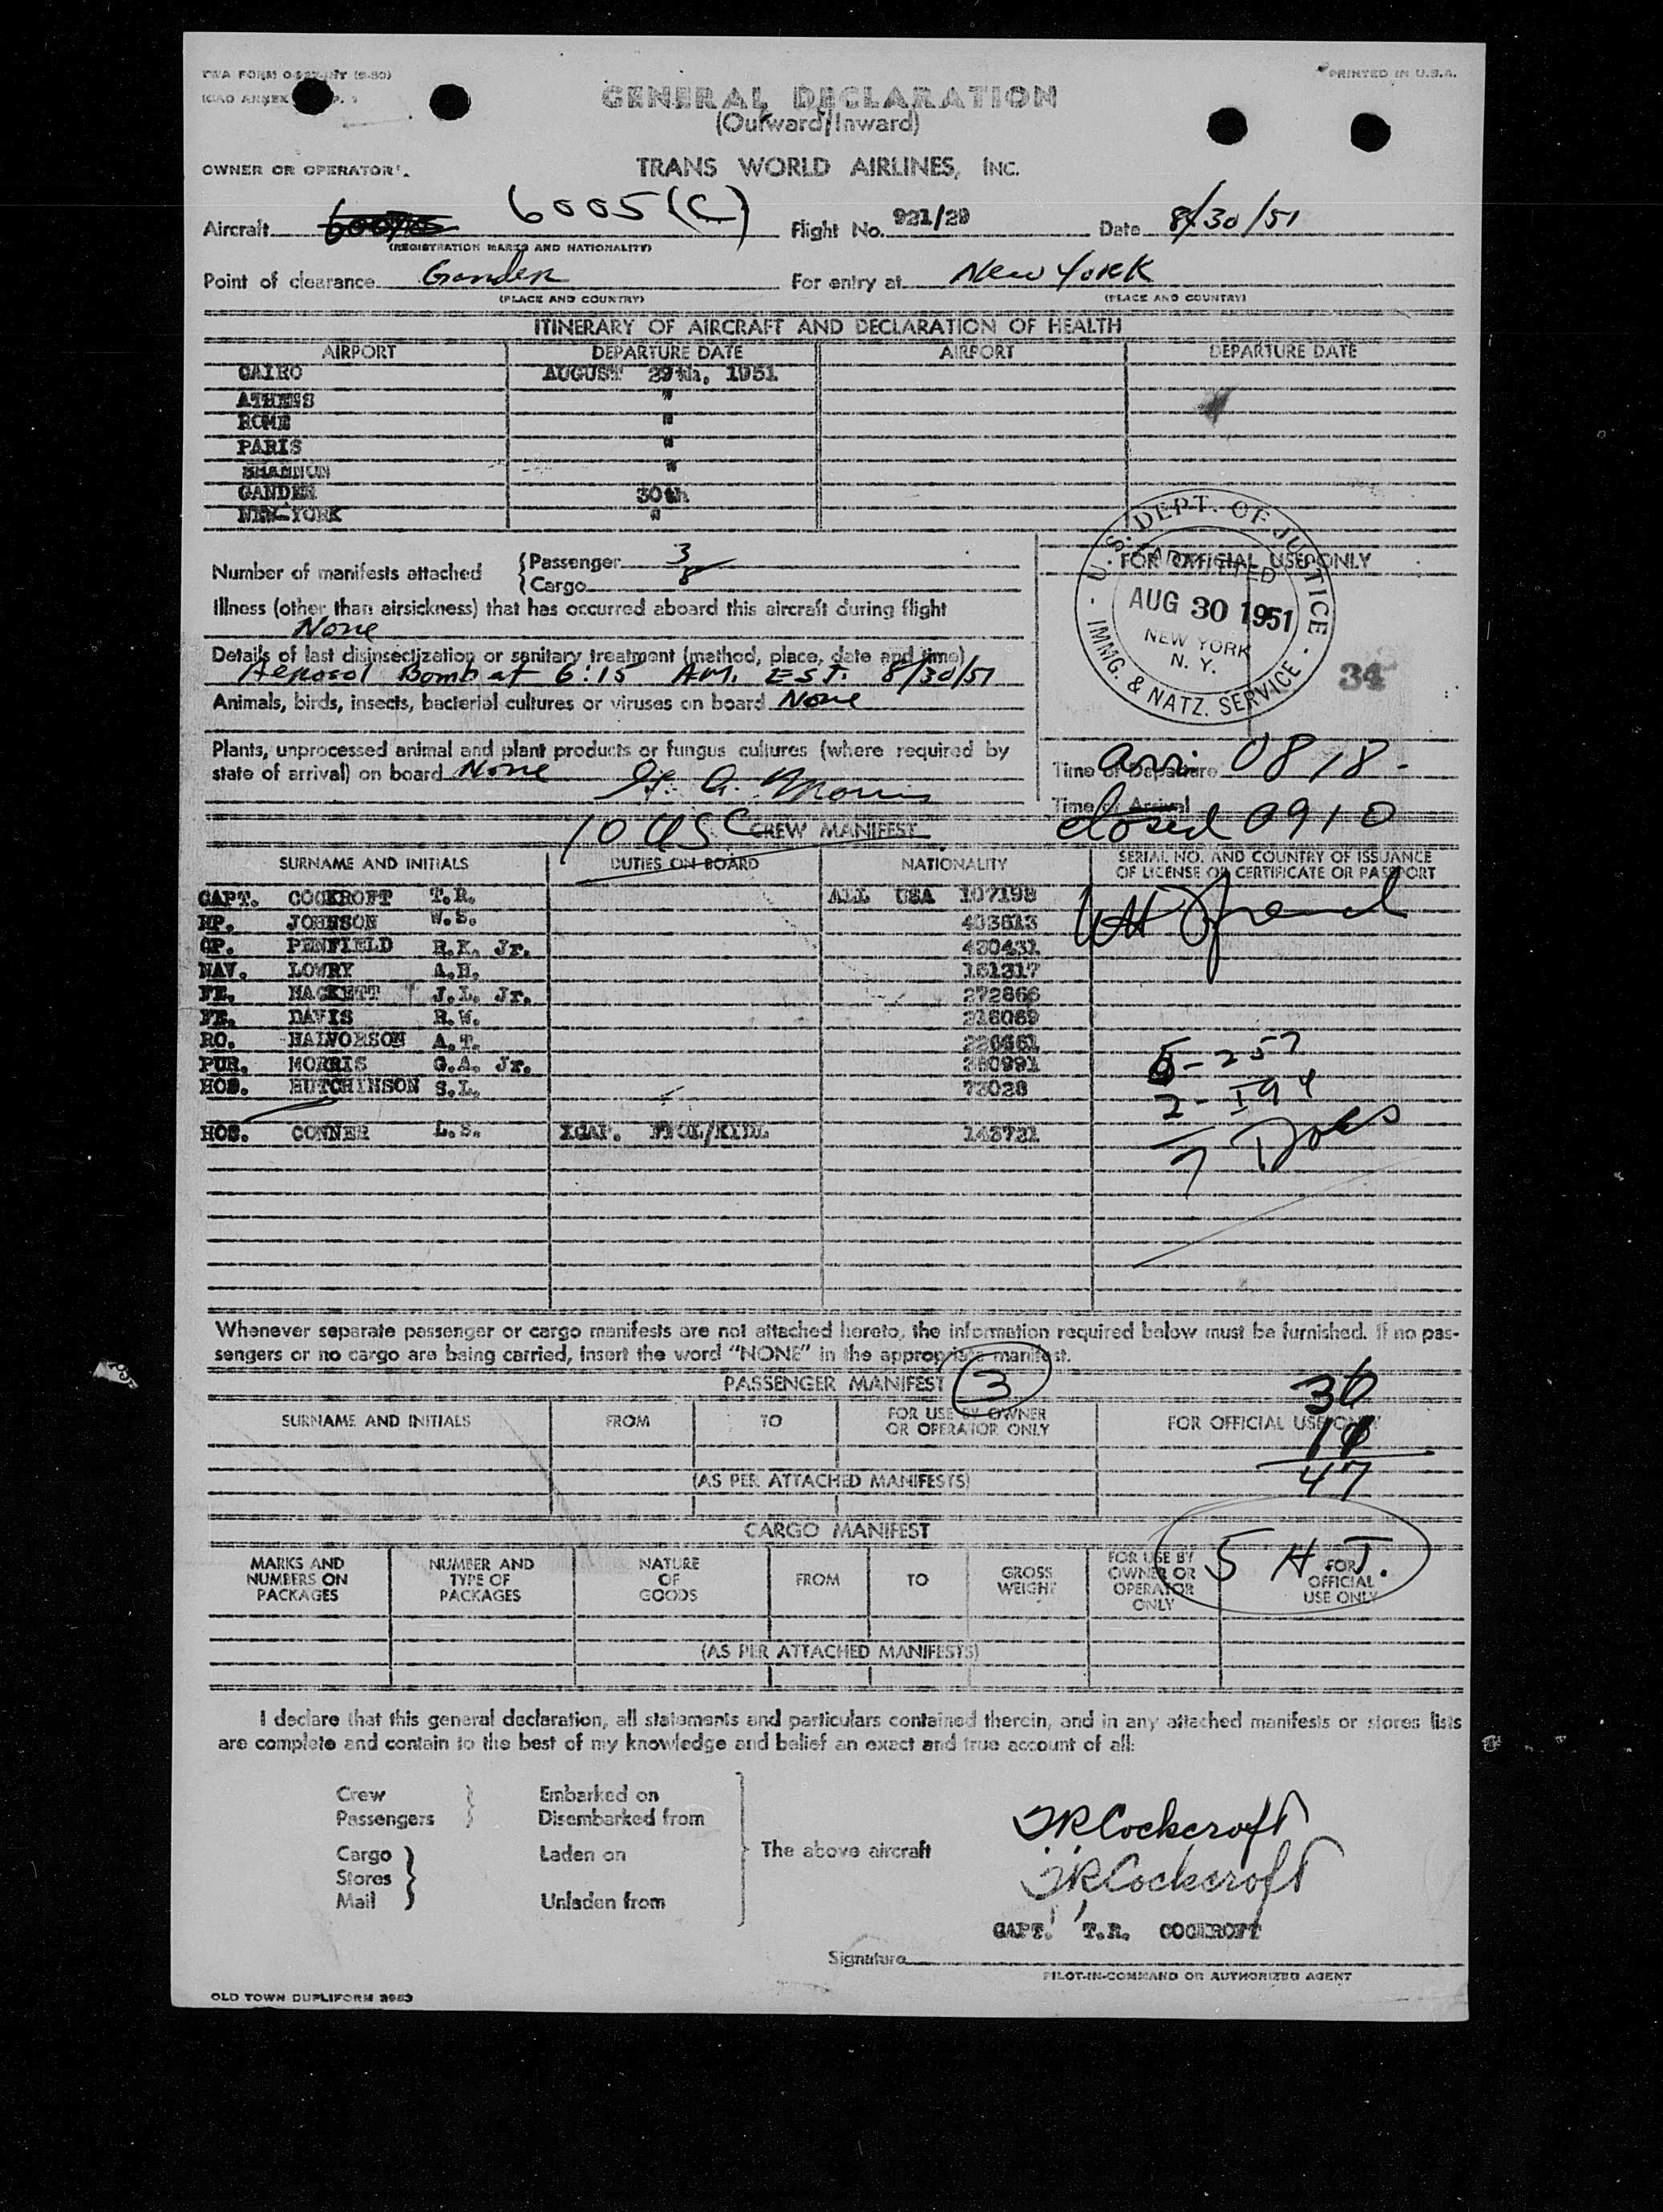 PRINTED IN U.S.A.
GENERAL DECLARATION
(Outward/Inward)
OWNER OR OPERATOR
TRANS WORLD AIRLINES, INC.
Aircraft 6005(C) Flight No. 921/29 Date 8/30/51
(REGISTRATION MARKS AND NATIONALITY)
Point of clearance Gander For entry at New York
(PLACE AND COUNTRY) (PLACE AND COUNTRY)
ITINERARY OF AIRCRAFT AND DECLARATION OF HEALTH
AIRPORT DEPARTURE DATE AIRPORT DEPARTURE DATE
CAIRO AUGUST 29th, 1951
ATHENS "
ROME "
PARIS "
SHANNON "
GANDER 30th
NEW-YORK "
Number of manifests attached
Passenger 3
Cargo 8
FOR OFFICIAL USE ONLY
U.S. DEPT. OF JUSTICE
ADMITTED
AUG 30 1951
NEW YORK
N. Y.
IMMG. & NATZ. SERVICE
34
Illness (other than airsickness) that has occurred aboard this aircraft during flight
None
Details of last disinsectization or sanitary treatment (method, place, date and time)
Aerosol Bomb at 6:15 A.M. EST. 8/30/51
Animals, birds, insects, bacterial cultures or viruses on board None
Plants, unprocessed animal and plant products or fungus cultures (where required by
state of arrival) on board None
G. A. Morris
Time of Departure arr. 0818
Time of Arrival closed 0910
10 USC CREW MANIFEST
SURNAME AND INITIALS DUTIES ON BOARD NATIONALITY SERIAL NO. AND COUNTRY OF ISSUANCE
OF LICENSE OR CERTIFICATE OR PASSPORT
CAPT. COCKROFT T.R. ALL USA 107198
JOHNSON W.S. 403613
PENFIELD R.K. Jr. 430431
NAV. LOWRY A.H. 161317
FE. HACKETT J.L. Jr. 272866
FE. DAVIS R.W. 216069
RO. HALVORSON A.T. 220461
PUR. MORRIS G.A. Jr. 260991
HOS. HUTCHINSON S.L. 72028
HOS. CONNER L.S. 143721
5-257
2-I94
7 Docs
Whenever separate passenger or cargo manifests are not attached hereto, the information required below must be furnished. If no pas-
sengers or no cargo are being carried, insert the word "NONE" in the appropriate manifest.
PASSENGER MANIFEST 3
SURNAME AND INITIALS FROM TO FOR USE BY OWNER
OR OPERATOR ONLY FOR OFFICIAL USE ONLY
36
11
47
(AS PER ATTACHED MANIFESTS)
CARGO MANIFEST
MARKS AND
NUMBERS ON
PACKAGES
NUMBER AND
TYPE OF
PACKAGES
NATURE
OF
GOODS
FROM
TO
GROSS
WEIGHT
FOR USE BY
OWNER OR
OPERATOR
ONLY
FOR
OFFICIAL
USE ONLY
5 H.T.
(AS PER ATTACHED MANIFESTS)
I declare that this general declaration, all statements and particulars contained therein, and in any attached manifests or stores lists
are complete and contain to the best of my knowledge and belief an exact and true account of all:
Crew Embarked on
Passengers Disembarked from
Cargo Laden on
Stores
Mail Unladen from
The above aircraft
TRCockcroft
TRCockcroft
CAPT. T.R. COCKROFT
Signature
PILOT-IN-COMMAND OR AUTHORIZED AGENT
OLD TOWN DUPLIFORM 2983